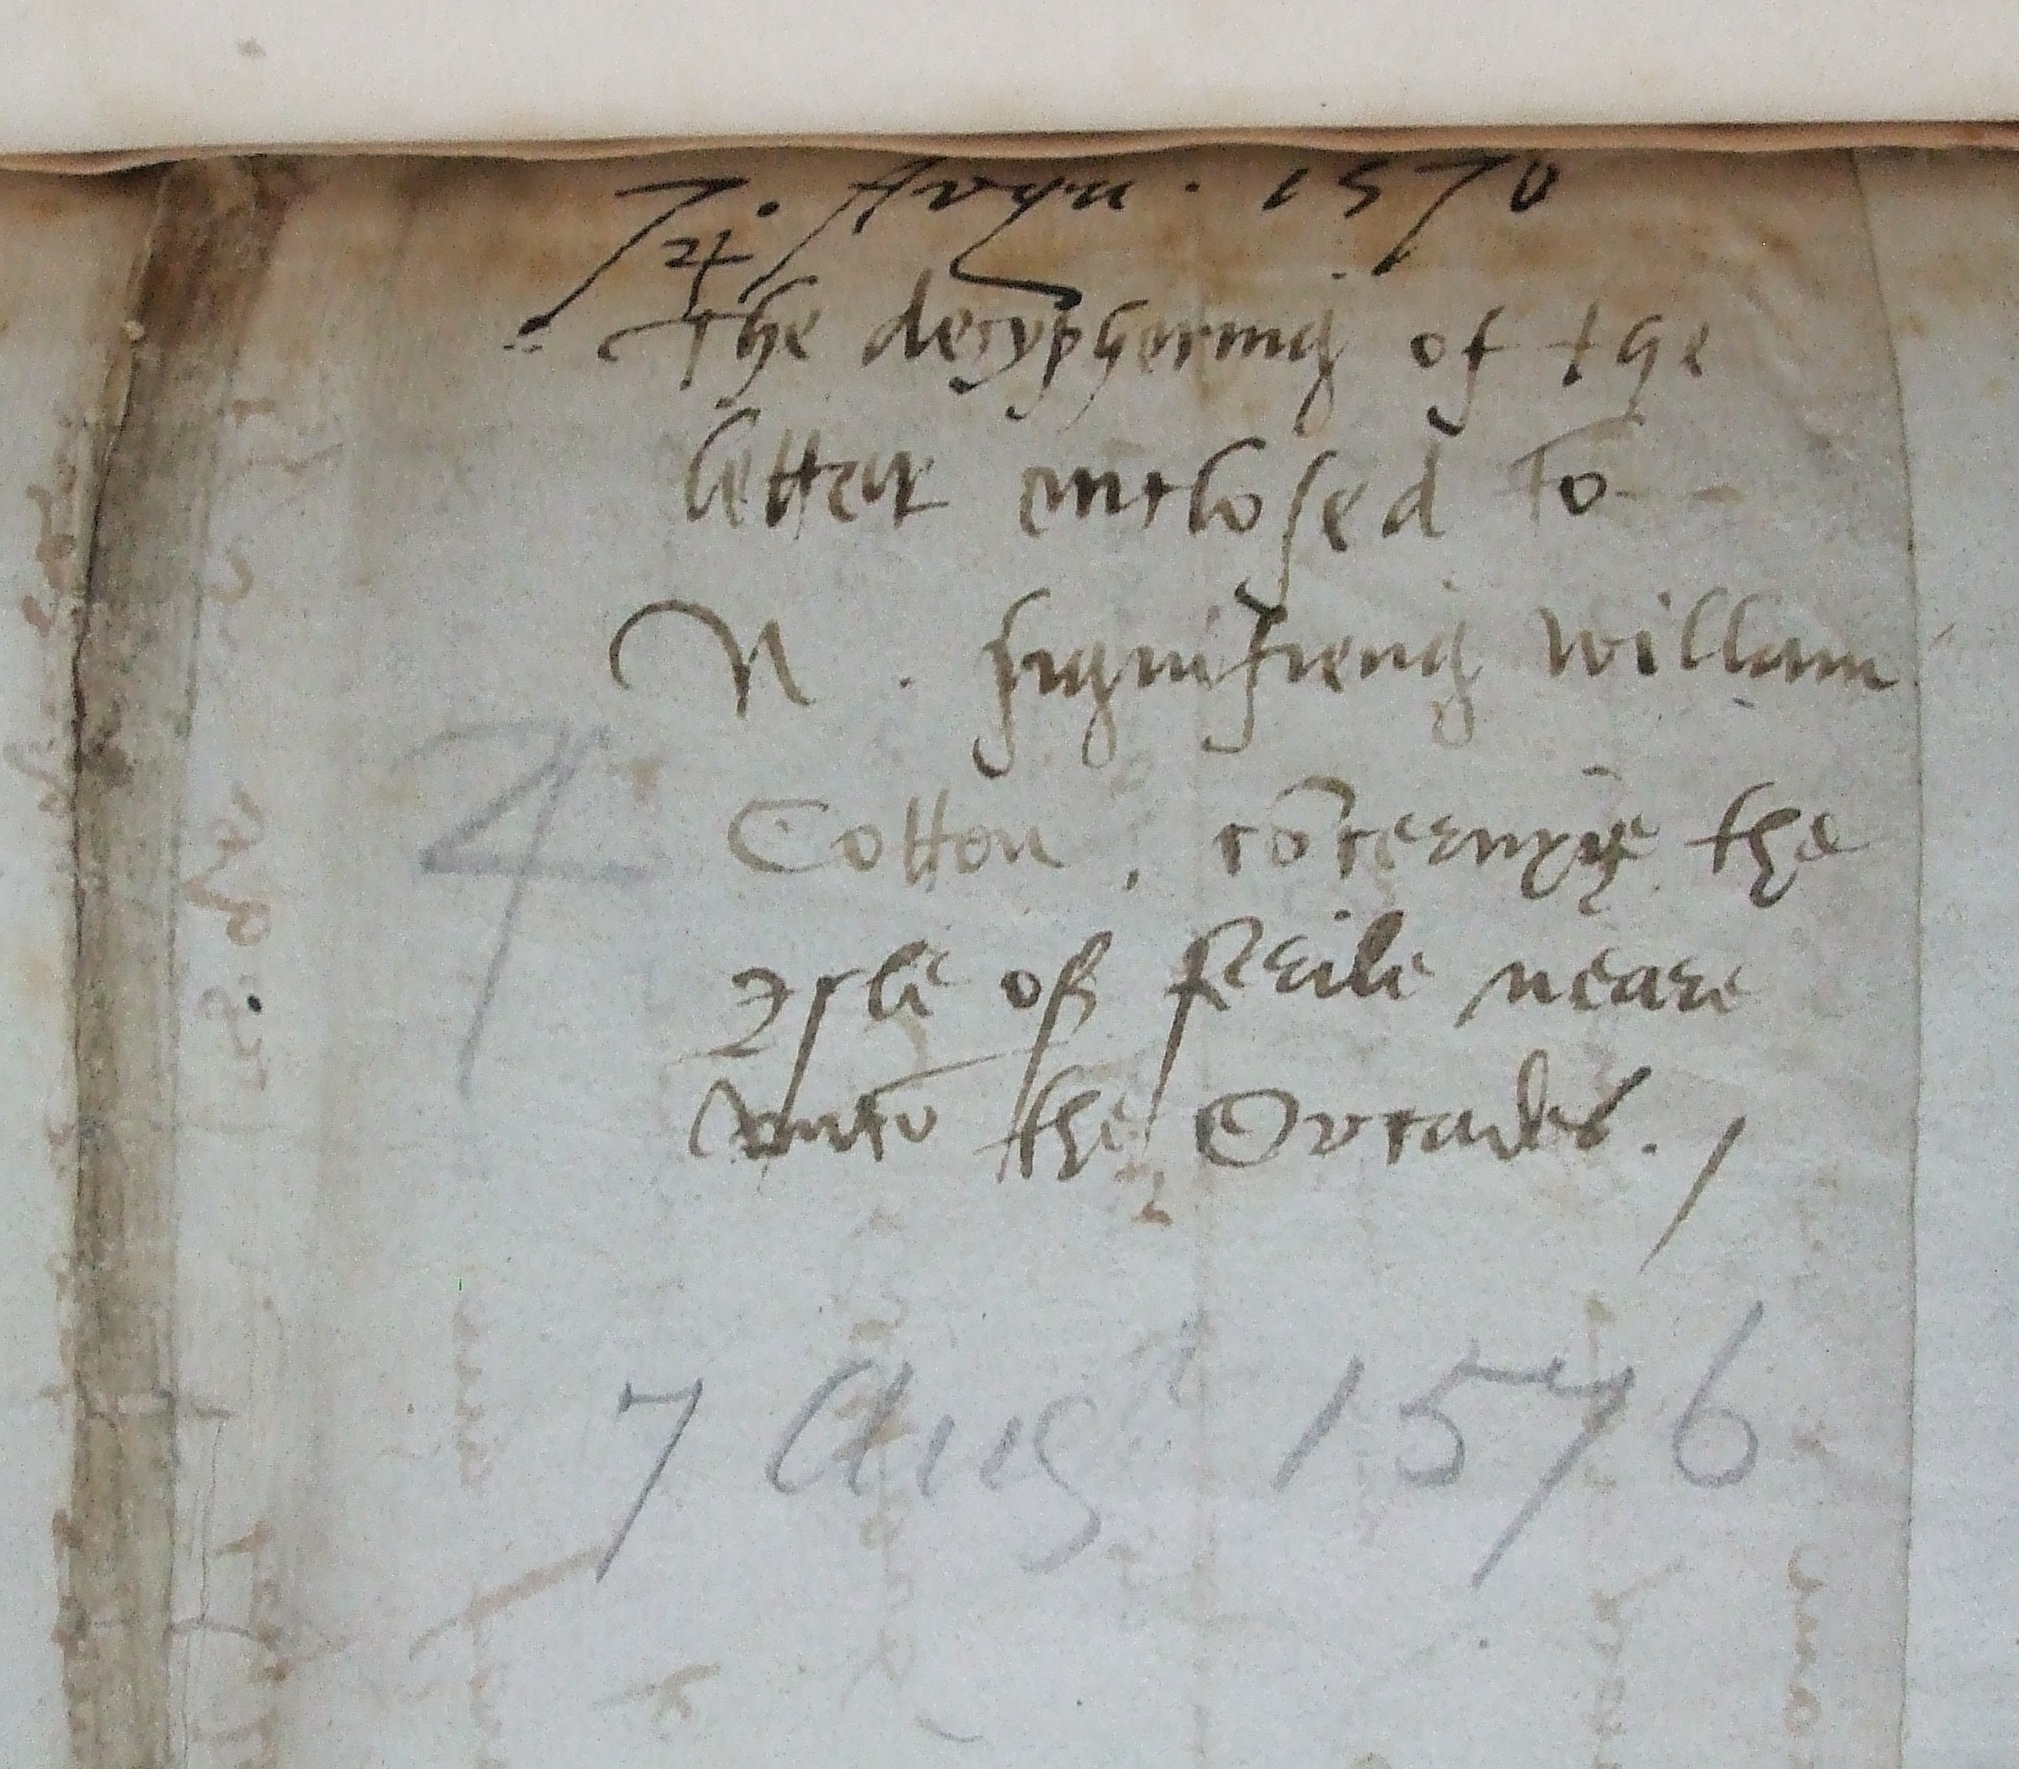 7. Augu. 1576
4
The decyphering of the
letter enclosed to
N. signifieng Willam
Cotton. cōcerning the
4
Isle of ferile neare
unto the Orcades.
7 Augt 1576